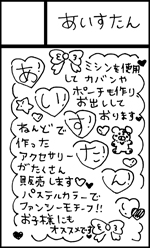 あいすたん
あいすたん
ミシンを使用
して カバンや
ポーチも作り、
お出しして
おります
ねんどで
作った
アクセサリー
がたくさん
販売します
パステルカラーで
ファンシーモチーフ!!
お子様にも
オススメです